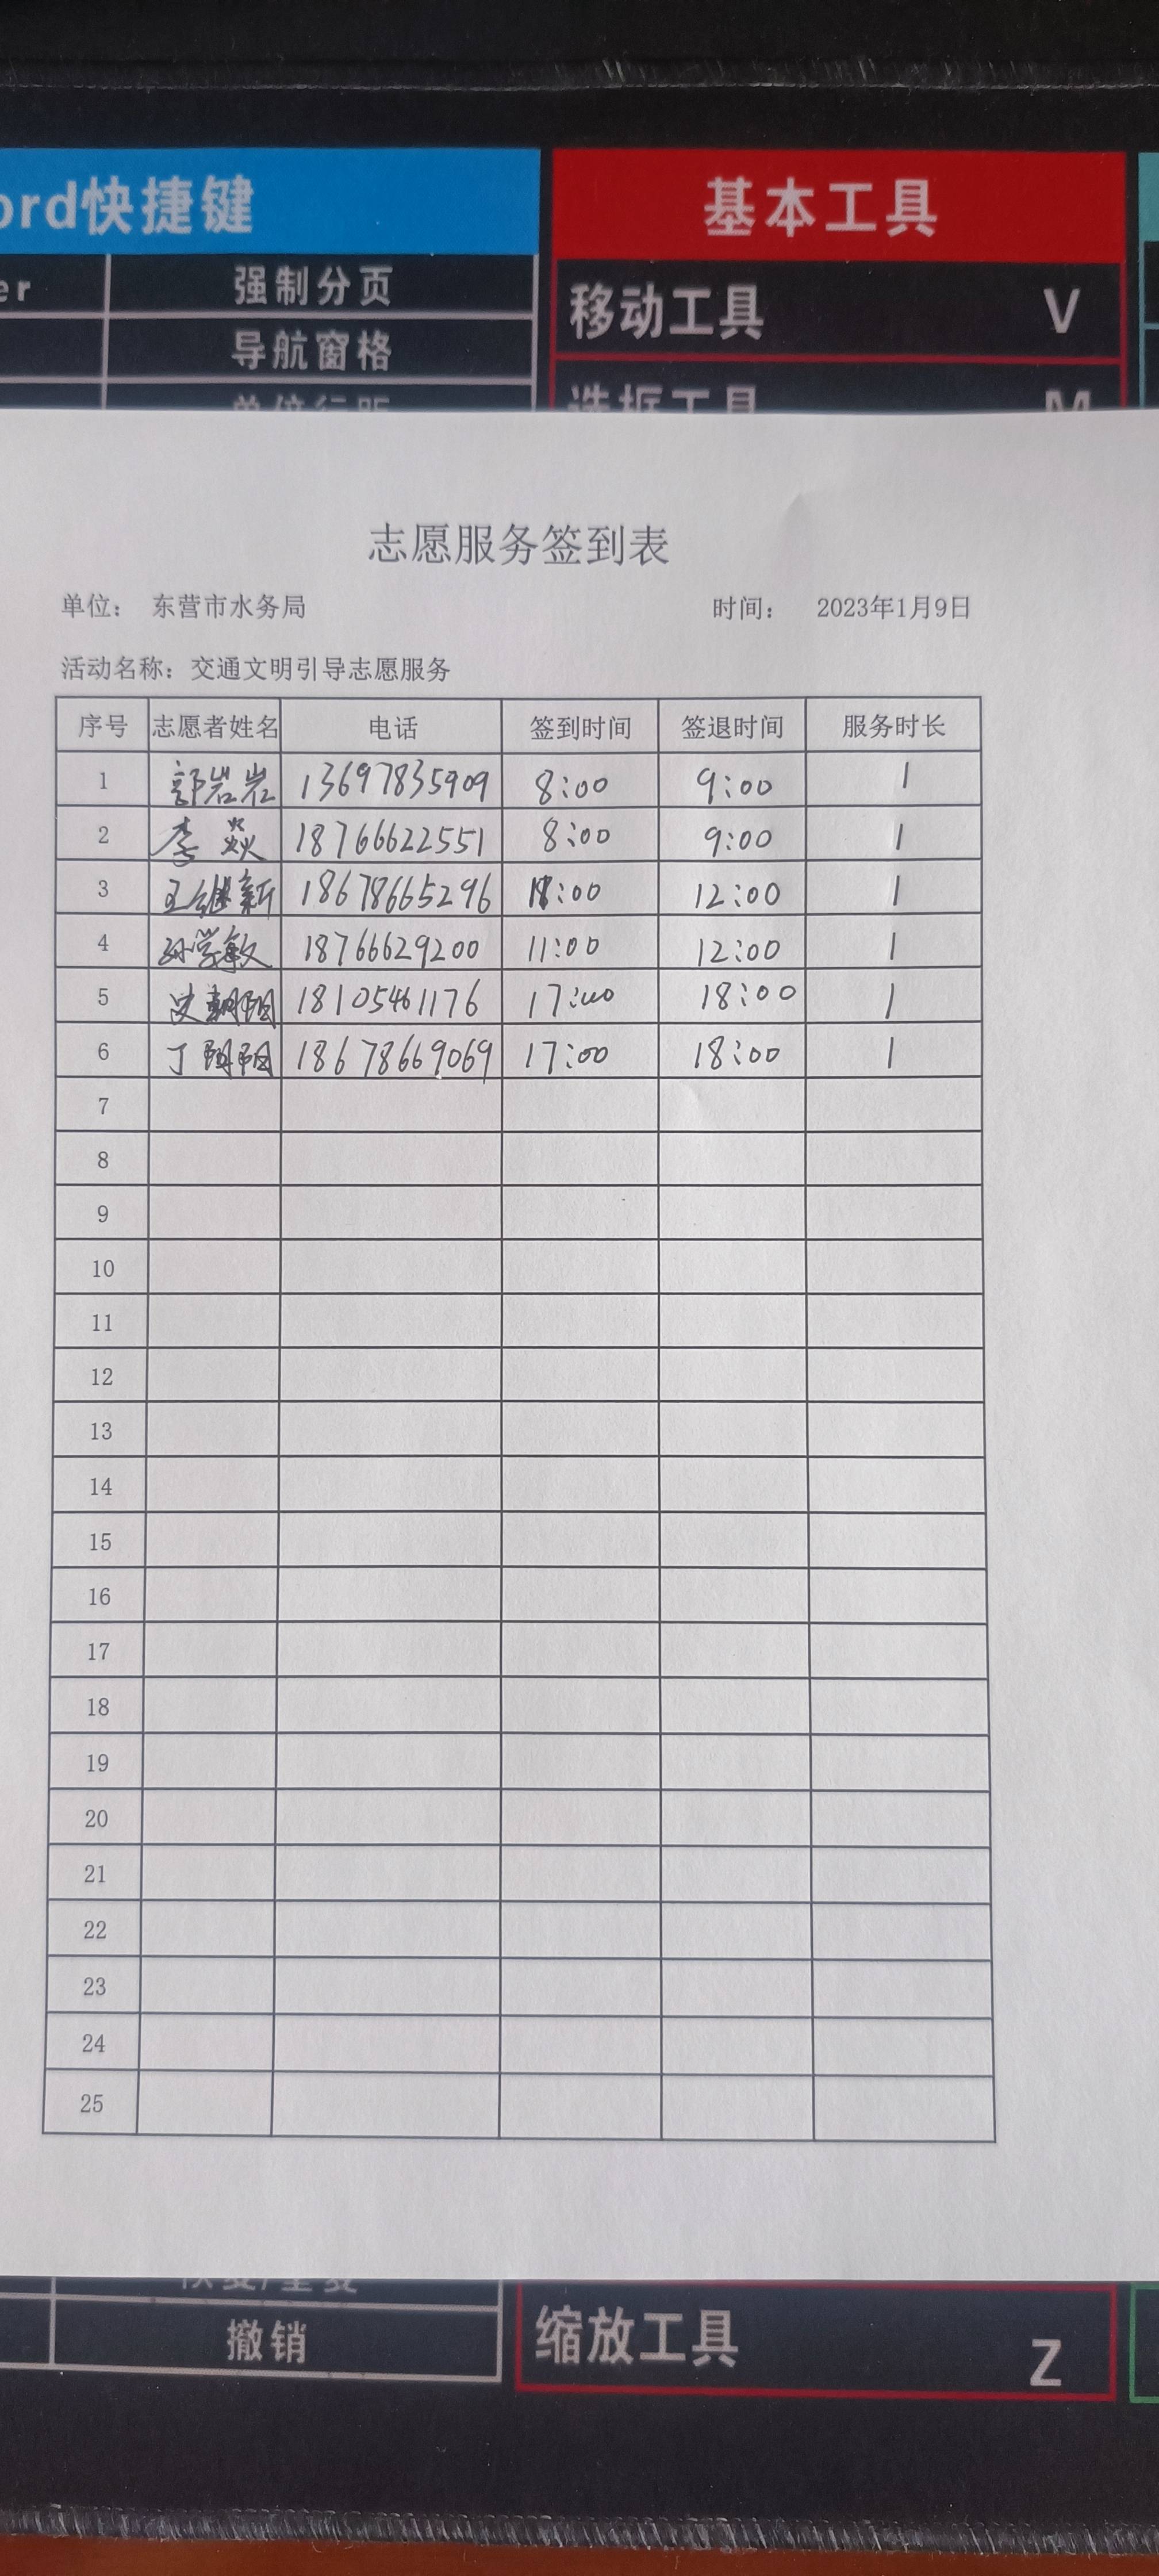 ord快捷键 基本工具
er 强制分页 移动工具 V
导航窗格
单位行距 选框工具 M
志愿服务签到表
单位： 东营市水务局 时间： 2023年1月9日
活动名称：交通文明引导志愿服务
序号 志愿者姓名 电话 签到时间 签退时间 服务时长
1 郭岩岩 13697835909 8:00 9:00 1
2 李焱 18766622551 8:00 9:00 1
3 王继新 18678665296 11:00 12:00 1
4 孙学敏 18766629200 11:00 12:00 1
5 史朝阳 18105461176 17:00 18:00 1
6 丁阳阳 18678669069 17:00 18:00 1
7
8
9
10
11
12
13
14
15
16
17
18
19
20
21
22
23
24
25
恢复/重复
撤销 缩放工具 Z